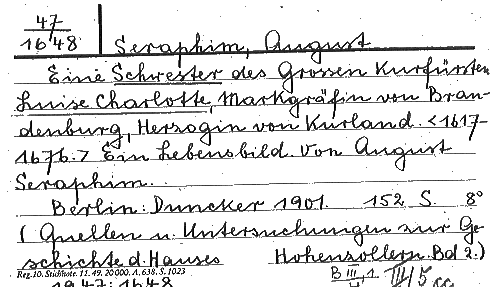 47
1648
Seraphim, August
Eine Schwester des Grossen Kurfürsten
Luise Charlotte, Markgräfin von Bran-
denburg, Herzogin von Kurland. <1617-
1676.> Ein Lebensbild. Von August
Seraphim.
Berlin: Duncker 1901. 152 S. 8°
(Quellen u. Untersuchungen zur Ge-
schichte d. Hauses Hohenzollern. Bd 2.)
Rez. 10. Stichwte. 11. 49. 20 000. A. 638. S. 1023
1947:1648